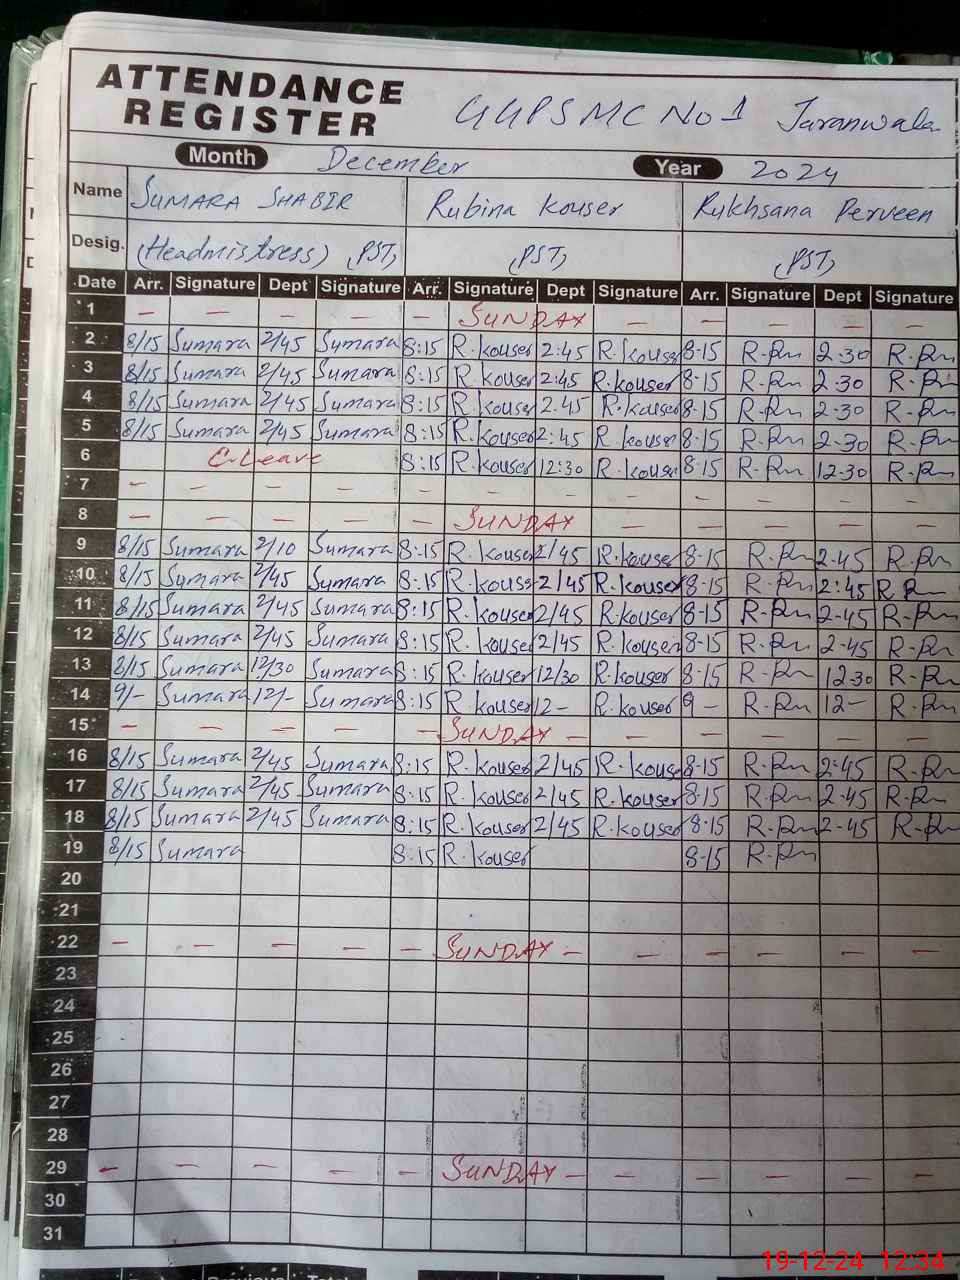 ATTENDANCE
REGISTER
GGPS MC No 1 Jaranwala
Month December Year 2024
Name SUMARA SHABIR Rubina Kouser Rukhsana Perveen
Desig. (Headmistress) (PST) (PST) (PST)
Date Arr. Signature Dept Signature Arr. Signature Dept Signature Arr. Signature Dept Signature
1 — — — — — SUNDAY — — — — —
2 8/15 Sumara 2/45 Sumara 8:15 R.kouser 2:45 R.kouser 8-15 R-Pn 2-30 R-Pn
3 8/15 Sumara 2/45 Sumara 8:15 R.kouser 2:45 R.kouser 8-15 R-Pn 2-30 R-Pn
4 8/15 Sumara 2/45 Sumara 8:15 R.kouser 2.45 R.kouser 8-15 R-Pn 2-30 R-Pn
5 8/15 Sumara 2/45 Sumara 8:15 R.kouser 2:45 R.kouser 8-15 R-Pn 2-30 R-Pn
6 C-Leave 8:15 R.kouser 12:30 R.kouser 8-15 R-Pn 12-30 R-Pn
7 — — — — — — — — — — — —
8 — — — — — SUNDAY — — — — —
9 8/15 Sumara 2/10 Sumara 8:15 R.kouser 2/45 R.kouser 8-15 R-Pn 2-45 R-Pn
10 8/15 Sumara 2/45 Sumara 8:15 R.kouser 2/45 R.kouser 8-15 R-Pn 2:45 R Pn
11 8/15 Sumara 2/45 Sumara 8:15 R.kouser 2/45 R.kouser 8-15 R-Pn 2-45 R-Pn
12 8/15 Sumara 2/45 Sumara 8:15 R.kouser 2/45 R.kouser 8-15 R-Pn 2-45 R-Pn
13 8/15 Sumara 12/30 Sumara 8:15 R.kouser 12/30 R.kouser 8-15 R-Pn 12-30 R-Pn
14 9/- Sumara 12/- Sumara 8:15 R.kouser 12- R.kouser 9- R-Pn 12- R-Pn
15 — — — — — SUNDAY — — — — — —
16 8/15 Sumara 2/45 Sumara 8:15 R.kouser 2/45 R.kouser 8-15 R-Pn 2:45 R-Pn
17 8/15 Sumara 2/45 Sumara 8:15 R.kouser 2/45 R.kouser 8-15 R-Pn 2-45 R-Pn
18 8/15 Sumara 2/45 Sumara 8:15 R.kouser 2/45 R.kouser 8-15 R-Pn 2-45 R-Pn
19 8/15 Sumara 8:15 R.kouser 8-15 R-Pn
20
21
22 — — — — — SUNDAY — — — — — —
23
24
25
26
27
28
29 — — — — — SUNDAY — — — — — —
30
31
19-12-24 12:34